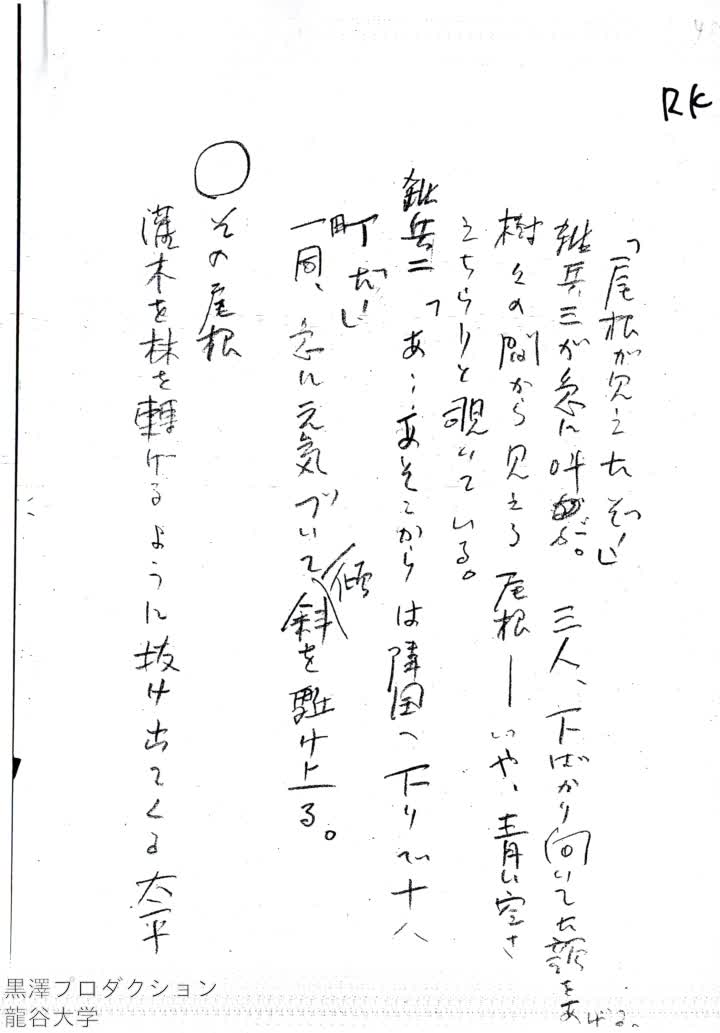 RK
「尾根が見えたぞッ!」
雑兵三が急に叫ぶ。三人、下ばかり向いてた顔をあげる。
樹々の間から見える尾根──いや、青い空さ
えちらりと覗いている。
雑兵二「あ……あそこからは隣国へ下りで十八
町だッ!」
一同、急に元気づいて傾斜を駈け上る。
○
その尾根
灌木を林を転げるように抜け出てくる太平
黒澤プロダクション
龍谷大学